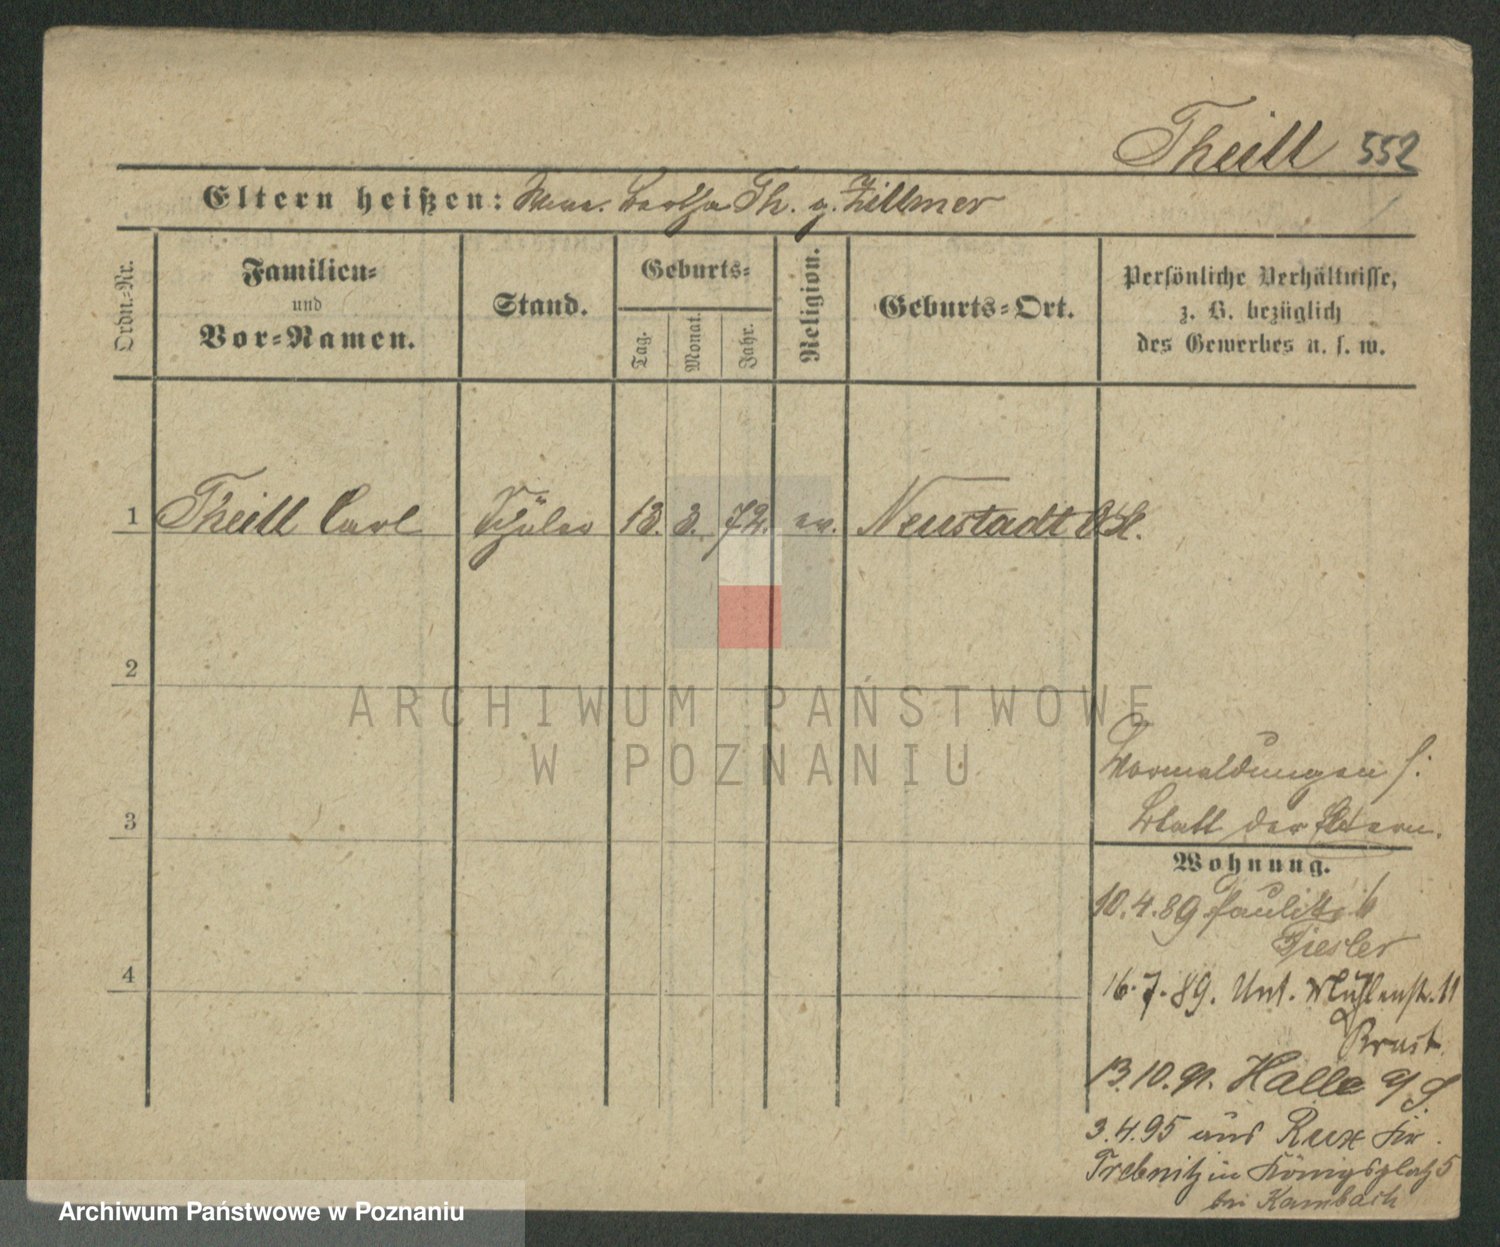 Theill 552
Eltern heißen: Bertha Th. g. Zillmer
Ordn.-Nr.
Familien-
und
Vor-Namen.
Stand.
Geburts-
Tag.
Monat.
Jahr.
Religion.
Geburts-Ort.
Persönliche Verhältnisse,
z. B. bezüglich
des Gewerbes u. s. w.
1 Theill Carl Schüler 13. 3. 72. ev. Neustadt O/S.
2
3
4
Vormeldungen s:
Blatt der Eltern.
Wohnung.
10.4.89
Tiesler
16.7.89. Unt. Mühlenstr. 11
13.10.91. Halle a/S
3.4.95 aus Rux Kr.
Trebnitz in Königsplatz 5
bei Kambach
ARCHIWUM PAŃSTWOWE
W POZNANIU
Archiwum Państwowe w Poznaniu